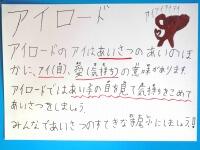 アイロード
アイアイアイアイ
アイロードのアイはあいさつのあいのほ
かに、アイ(目)、愛(気持ち)の意味があります。
アイロードではあい手の目を見て気持ちをこめて
あいさつをしましょう。
みんなであいさつのすてきな
にしましょう!!